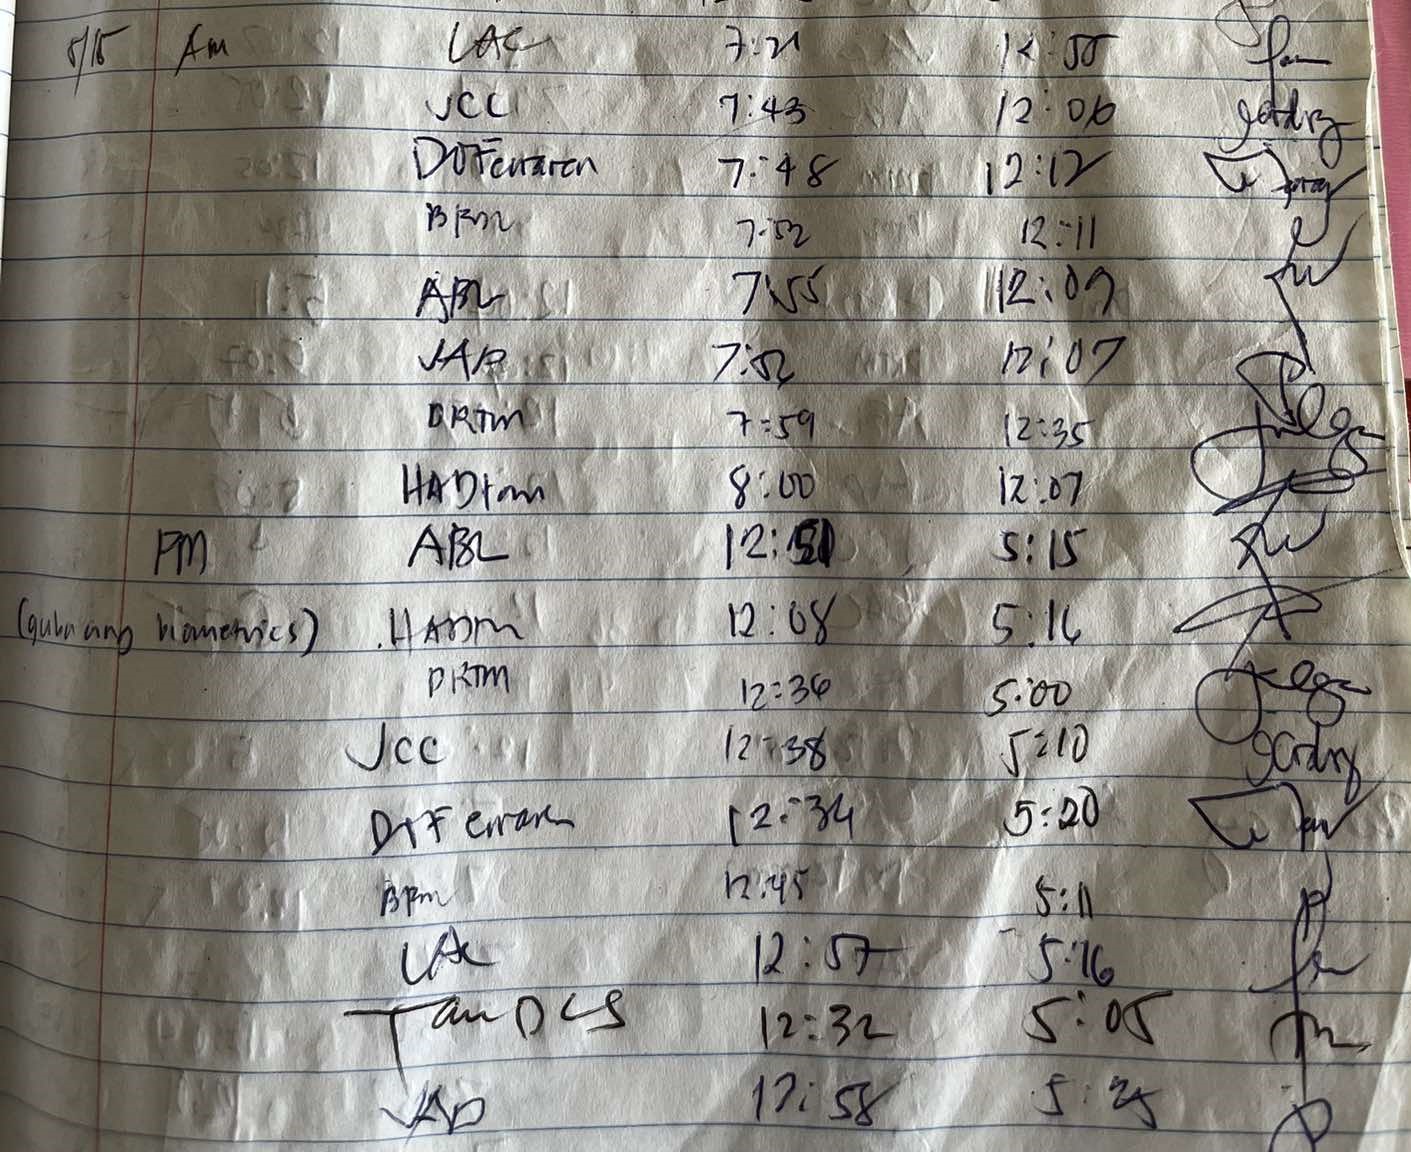 5/15 Am LAC 7:21 12:55
JCC 7:43 12:06
DOTFerraren 7:48 12:12
BRM 7:52 12:11
ABL 7:55 12:09
JAD 7:52 12:07
DRTM 7:59 12:35
HADTam 8:00 12:07
PM ABL 12:51 5:15
(guba ang biometrics) HADTM 12:08 5:16
DRTM 12:36 5:00
JCC 12:38 5:10
DTFerraren 12:34 5:20
BRM 12:45 5:11
LAC 12:57 5:16
Tan DCS 12:32 5:05
JAD 12:58 5:25